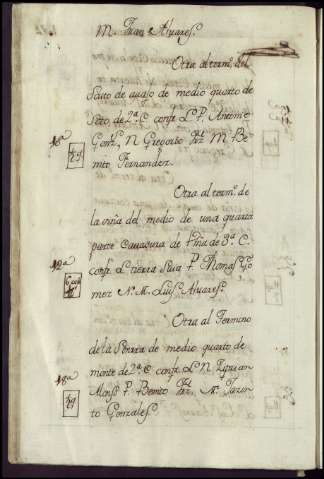 M. Juan Alvares.
Otra al term.o del
Souto de auajo de medio quarto de
Soto de 2.a C. confr. L. P. Antonio
Gonz. N. Gregorio Frz. M. Be-
nito Fernandez.
Otra al term.o de
la viña del medio de una quarta
parte de 3.a C.
confr. L. tierra suia P. Thomas Go
mez N. M. Luis Alvares.
18a
Otra al Termino
de la Porra de medio quarto de
monte de 2.a C. confr. L. N.
Alonso P. Benito Frz. M. Jazin-
to Gonzales.
18a